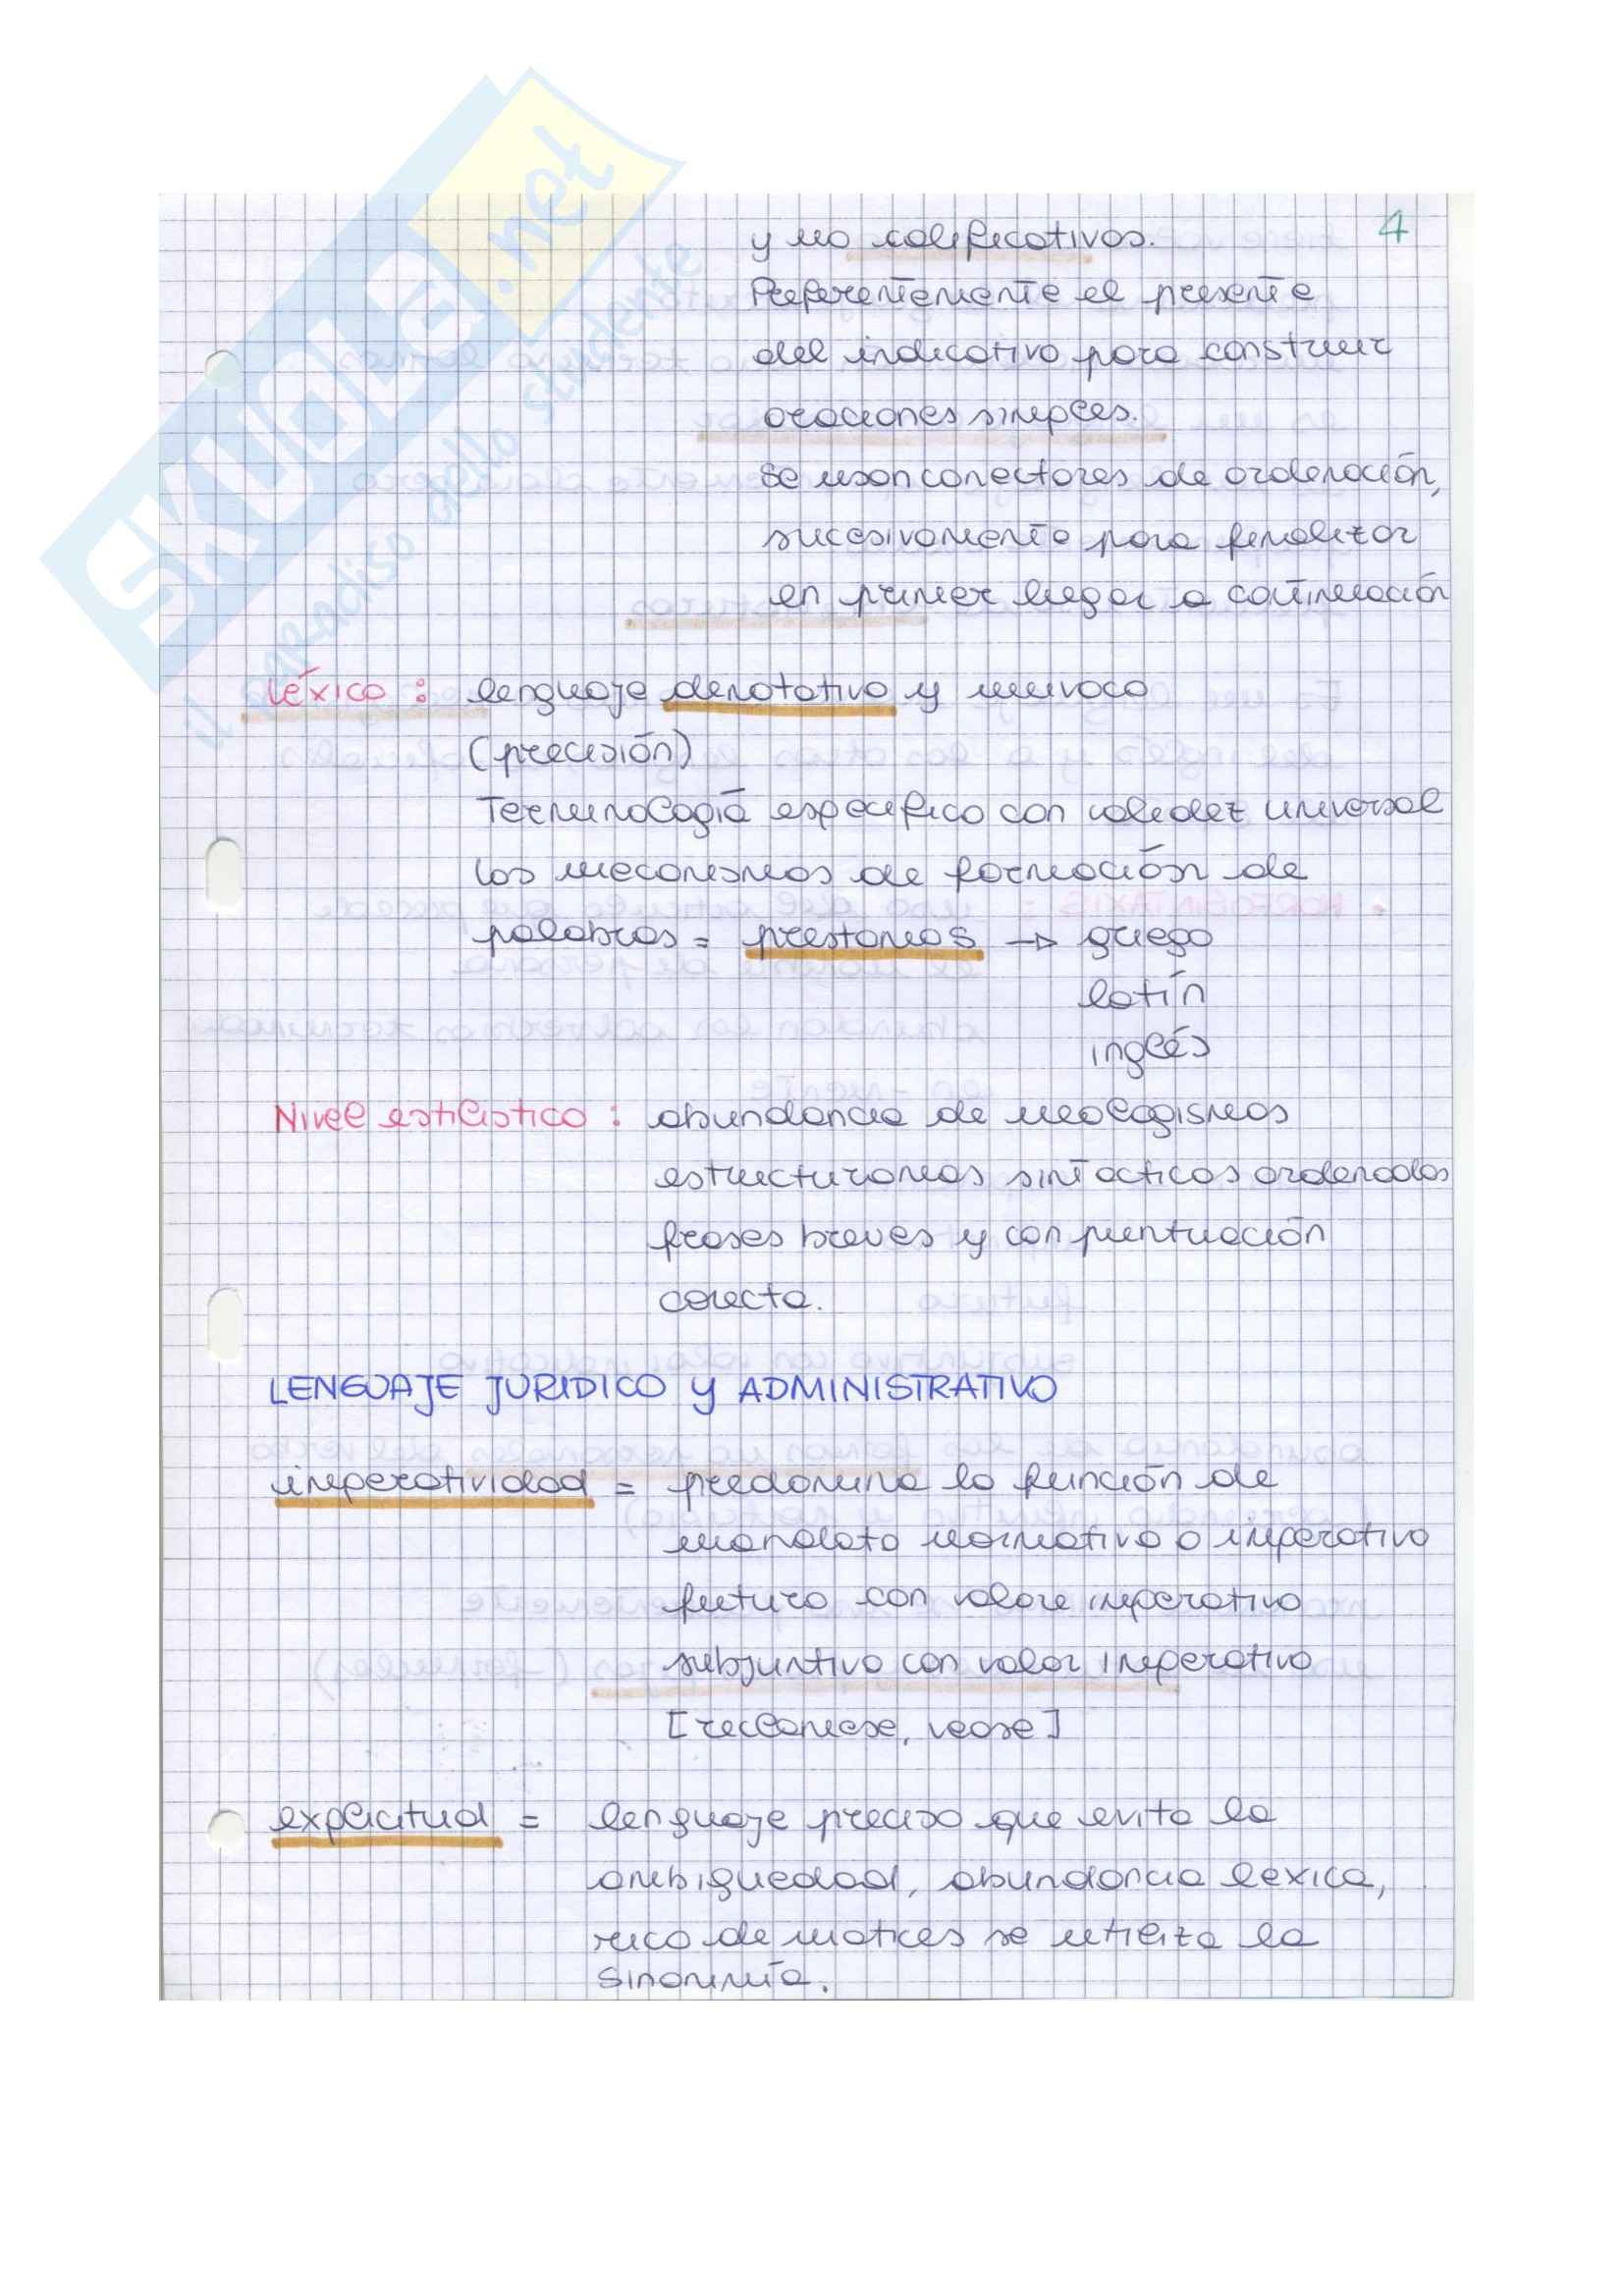 4
y no calificativos.
Preferentemente el presente
del indicativo para construir
oraciones simples.
se usan conectores de ordenación,
sucesivamente para finalizar
en primer lugar a continuación
Léxico : lenguaje denotativo y univoco
(precisión)
Terminología especifica con validez universal
los mecanismos de formación de
palabras = prestamos → griego
latín
inglés
Nivel estilistico : abundancia de neologismos
estructuramas sintacticas ordenadas
frases breves y con puntuación
corecta.
LENGUAJE JURIDICO y ADMINISTRATIVO
imperatividad = predomina la función de
mandato normativo o imperativo
futuro con valore imperativo
subjuntivo con valor imperativo
[reclamese, vease]
explicitud = lenguaje preciso que evita la
ambiguedad, abundancia lexica,
rico de matices se utiliza la
sinonimía.
SKUOLA.net
il paradiso dello studente